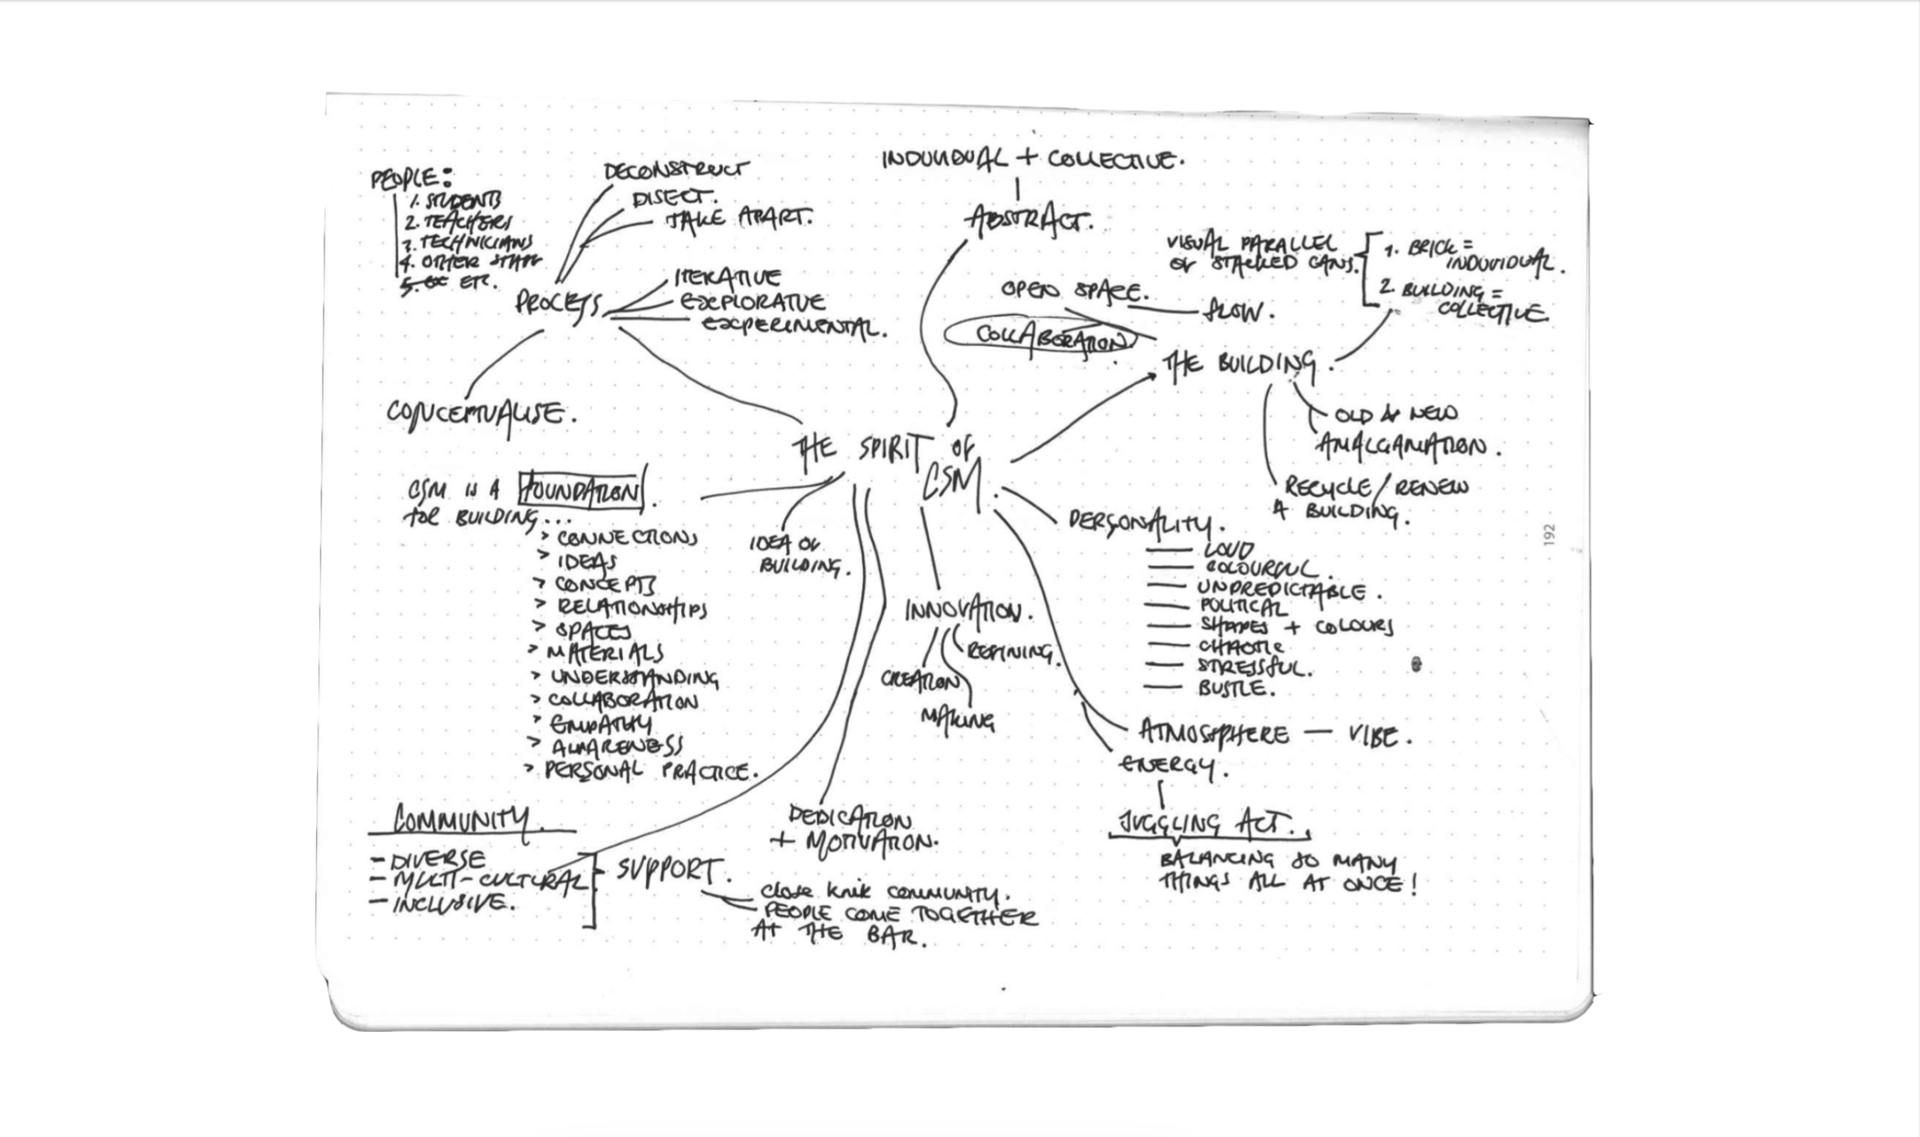 PEOPLE:
1. STUDENTS
2. TEACHERS
3. TECHNICIANS
4. OTHER STAFF
5. ETC.
DECONSTRUCT
DISECT.
TAKE APART.
PROCESS
ITERATIVE
EXPLORATIVE
EXPERIMENTAL.
CONCEPTUALISE.
INDIVIDUAL + COLLECTIVE.
ABSTRACT.
VISUAL PARALLEL
OF STACKED CANS.
1. BRICK =
INDIVIDUAL.
2. BUILDING =
COLLECTIVE
OPEN SPACE.
FLOW.
COLLABORATION.
THE BUILDING.
OLD & NEW
AMALGAMATION.
RECYCLE/RENEW
A BUILDING.
THE SPIRIT OF
CSM.
CSM IS A FOUNDATION.
FOR BUILDING...
> CONNECTIONS
> IDEAS
> CONCEPTS
> RELATIONSHIPS
> SPACES
> MATERIALS
> UNDERSTANDING
> COLLABORATION
> EMPATHY
> AWARENESS
> PERSONAL PRACTICE.
IDEA OF
BUILDING.
INNOVATION.
REFINING.
CREATION
MAKING
PERSONALITY.
— LOUD
— COLOURFUL.
— UNPREDICTABLE.
— POLITICAL
— SHAPES + COLOURS
— CHAOTIC
— STRESSFUL.
— BUSTLE.
ATMOSPHERE — VIBE.
ENERGY.
JUGGLING ACT.
BALANCING SO MANY
THINGS ALL AT ONCE!
DEDICATION
+ MOTIVATION.
COMMUNITY.
- DIVERSE
- MULTI-CULTURAL
- INCLUSIVE.
SUPPORT.
close knit COMMUNITY.
PEOPLE COME TOGETHER
AT THE BAR.
192